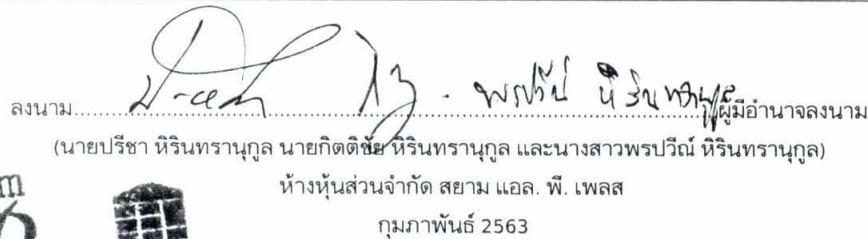 ลงนาม........................................ พรปวีณ์ หิรินทรานุกูล ผู้มีอำนาจลงนาม
(นายปรีชา หิรินทรานุกูล นายกิตติชัย หิรินทรานุกูล และนางสาวพรปวีณ์ หิรินทรานุกูล)
ห้างหุ้นส่วนจำกัด สยาม แอล. พี. เพลส
กุมภาพันธ์ 2563